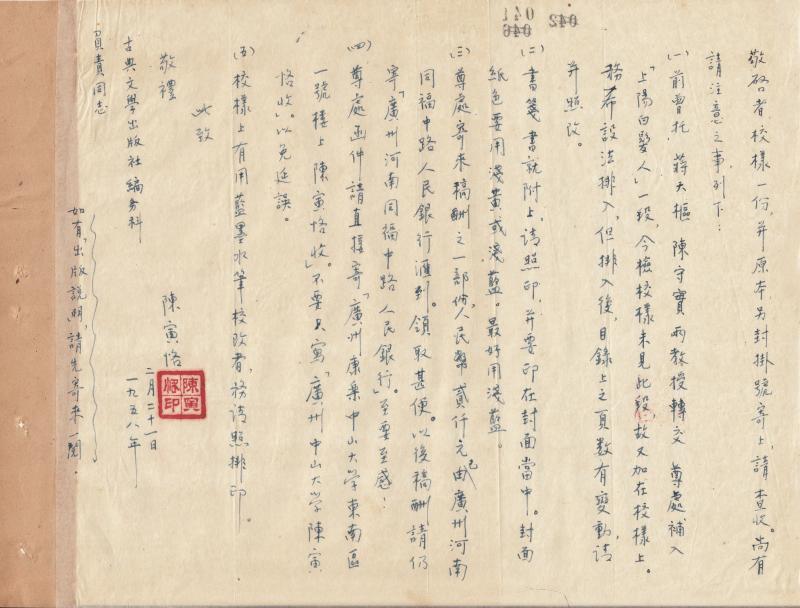 敬啓者校樣一份，并原本另封掛號寄上，請查收。尚有
請注意之事列下：
(一) 前曾托 蔣天樞 陳守實兩教授轉交 尊處補入
「上陽白髮人」一段，今檢校樣未見此段，故又加在校樣上。
務希設法排入，但排入後，目錄上之頁數有變動，請
并照改。
(二) 書箋書就附上，請照印，并要印在封面當中。封面
紙色要用淺黃或淺藍。最好用淺藍。
(三) 尊處寄來稿酬之一部份，人民幣貳仟元已由廣州河南
同福中路人民銀行滙到。領取甚便。以後稿酬請仍
寄「廣州河南同福中路人民銀行」。至要至感！
(四) 尊處函件請直接寄「廣州康樂中山大學東南區
一號樓上陳寅恪收」。不要只寫「廣州中山大學陳寅
恪收」。以免延誤。
(五) 校樣上有用藍墨水筆校改者，務請照排印。
此致
敬禮
古典文學出版社編務科
負責同志
陳寅恪
陳寅恪印
二月二十一日
一九五八年
如有「出版說明」，請先寄來一閱.
041
042
046